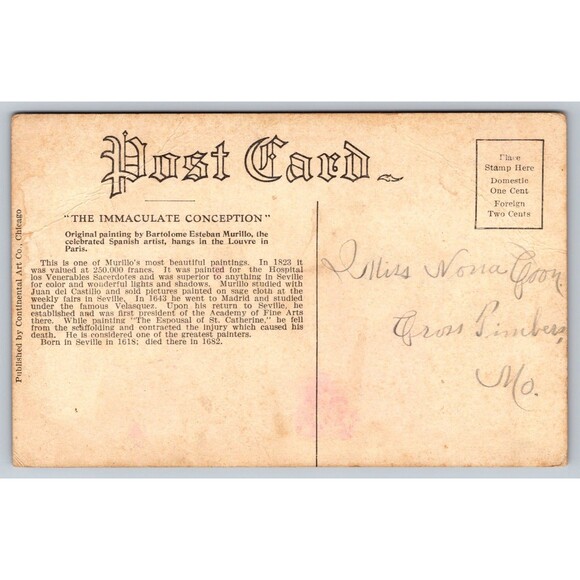 Post Card
Place
Stamp Here
Domestic
One Cent
Foreign
Two Cents
"THE IMMACULATE CONCEPTION"
Original painting by Bartolome Esteban Murillo, the
celebrated Spanish artist, hangs in the Louvre in
Paris.
This is one of Murillo's most beautiful paintings. In 1823 it
was valued at 250.000 francs. It was painted for the Hospital
los Venerables Sacerdotes and was superior to anything in Seville
for color and wonderful lights and shadows. Murillo studied with
Juan del Castillo and sold pictures painted on sage cloth at the
weekly fairs in Seville. In 1643 he went to Madrid and studied
under the famous Velasquez. Upon his return to Seville, he
established and was first president of the Academy of Fine Arts
there. While painting "The Espousal of St. Catherine," he fell
from the scaffolding and contracted the injury which caused his
death. He is considered one of the greatest painters.
Born in Seville in 1618; died there in 1682.
Published by Continental Art Co., Chicago
Miss Nona Coon
Cross Timbers,
Mo.